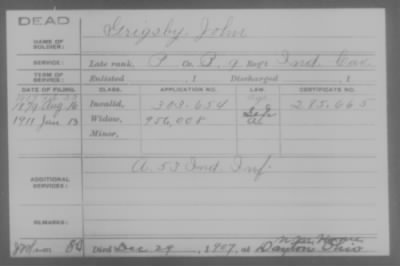 DEAD
Grigsby John
NAME OF SOLDIER:
SERVICE: Late rank, P Co. P, 9 Reg't Ind. Cav.
TERM OF SERVICE: Enlisted , 1 Discharged , 1
DATE OF FILING. CLASS. APPLICATION NO. LAW. CERTIFICATE NO.
1879 Aug 16 Invalid, 303.654 285.665
1911 Jan 13 Widow, 956,008
Minor,
ADDITIONAL SERVICES: A. 53 Ind. Inf.
REMARKS:
Died Dec 29, 1907, at Dayton Ohio